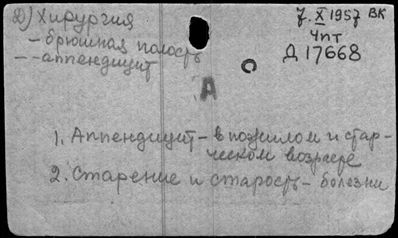 Д) Хирургия
7.X 1957 ВК
- брюшная полость
Чпт
-- аппендицит
Д 17668
А
1. Аппендицит - в пожилом и стар-
ческом возрасте
2. Старение и старость - болезни